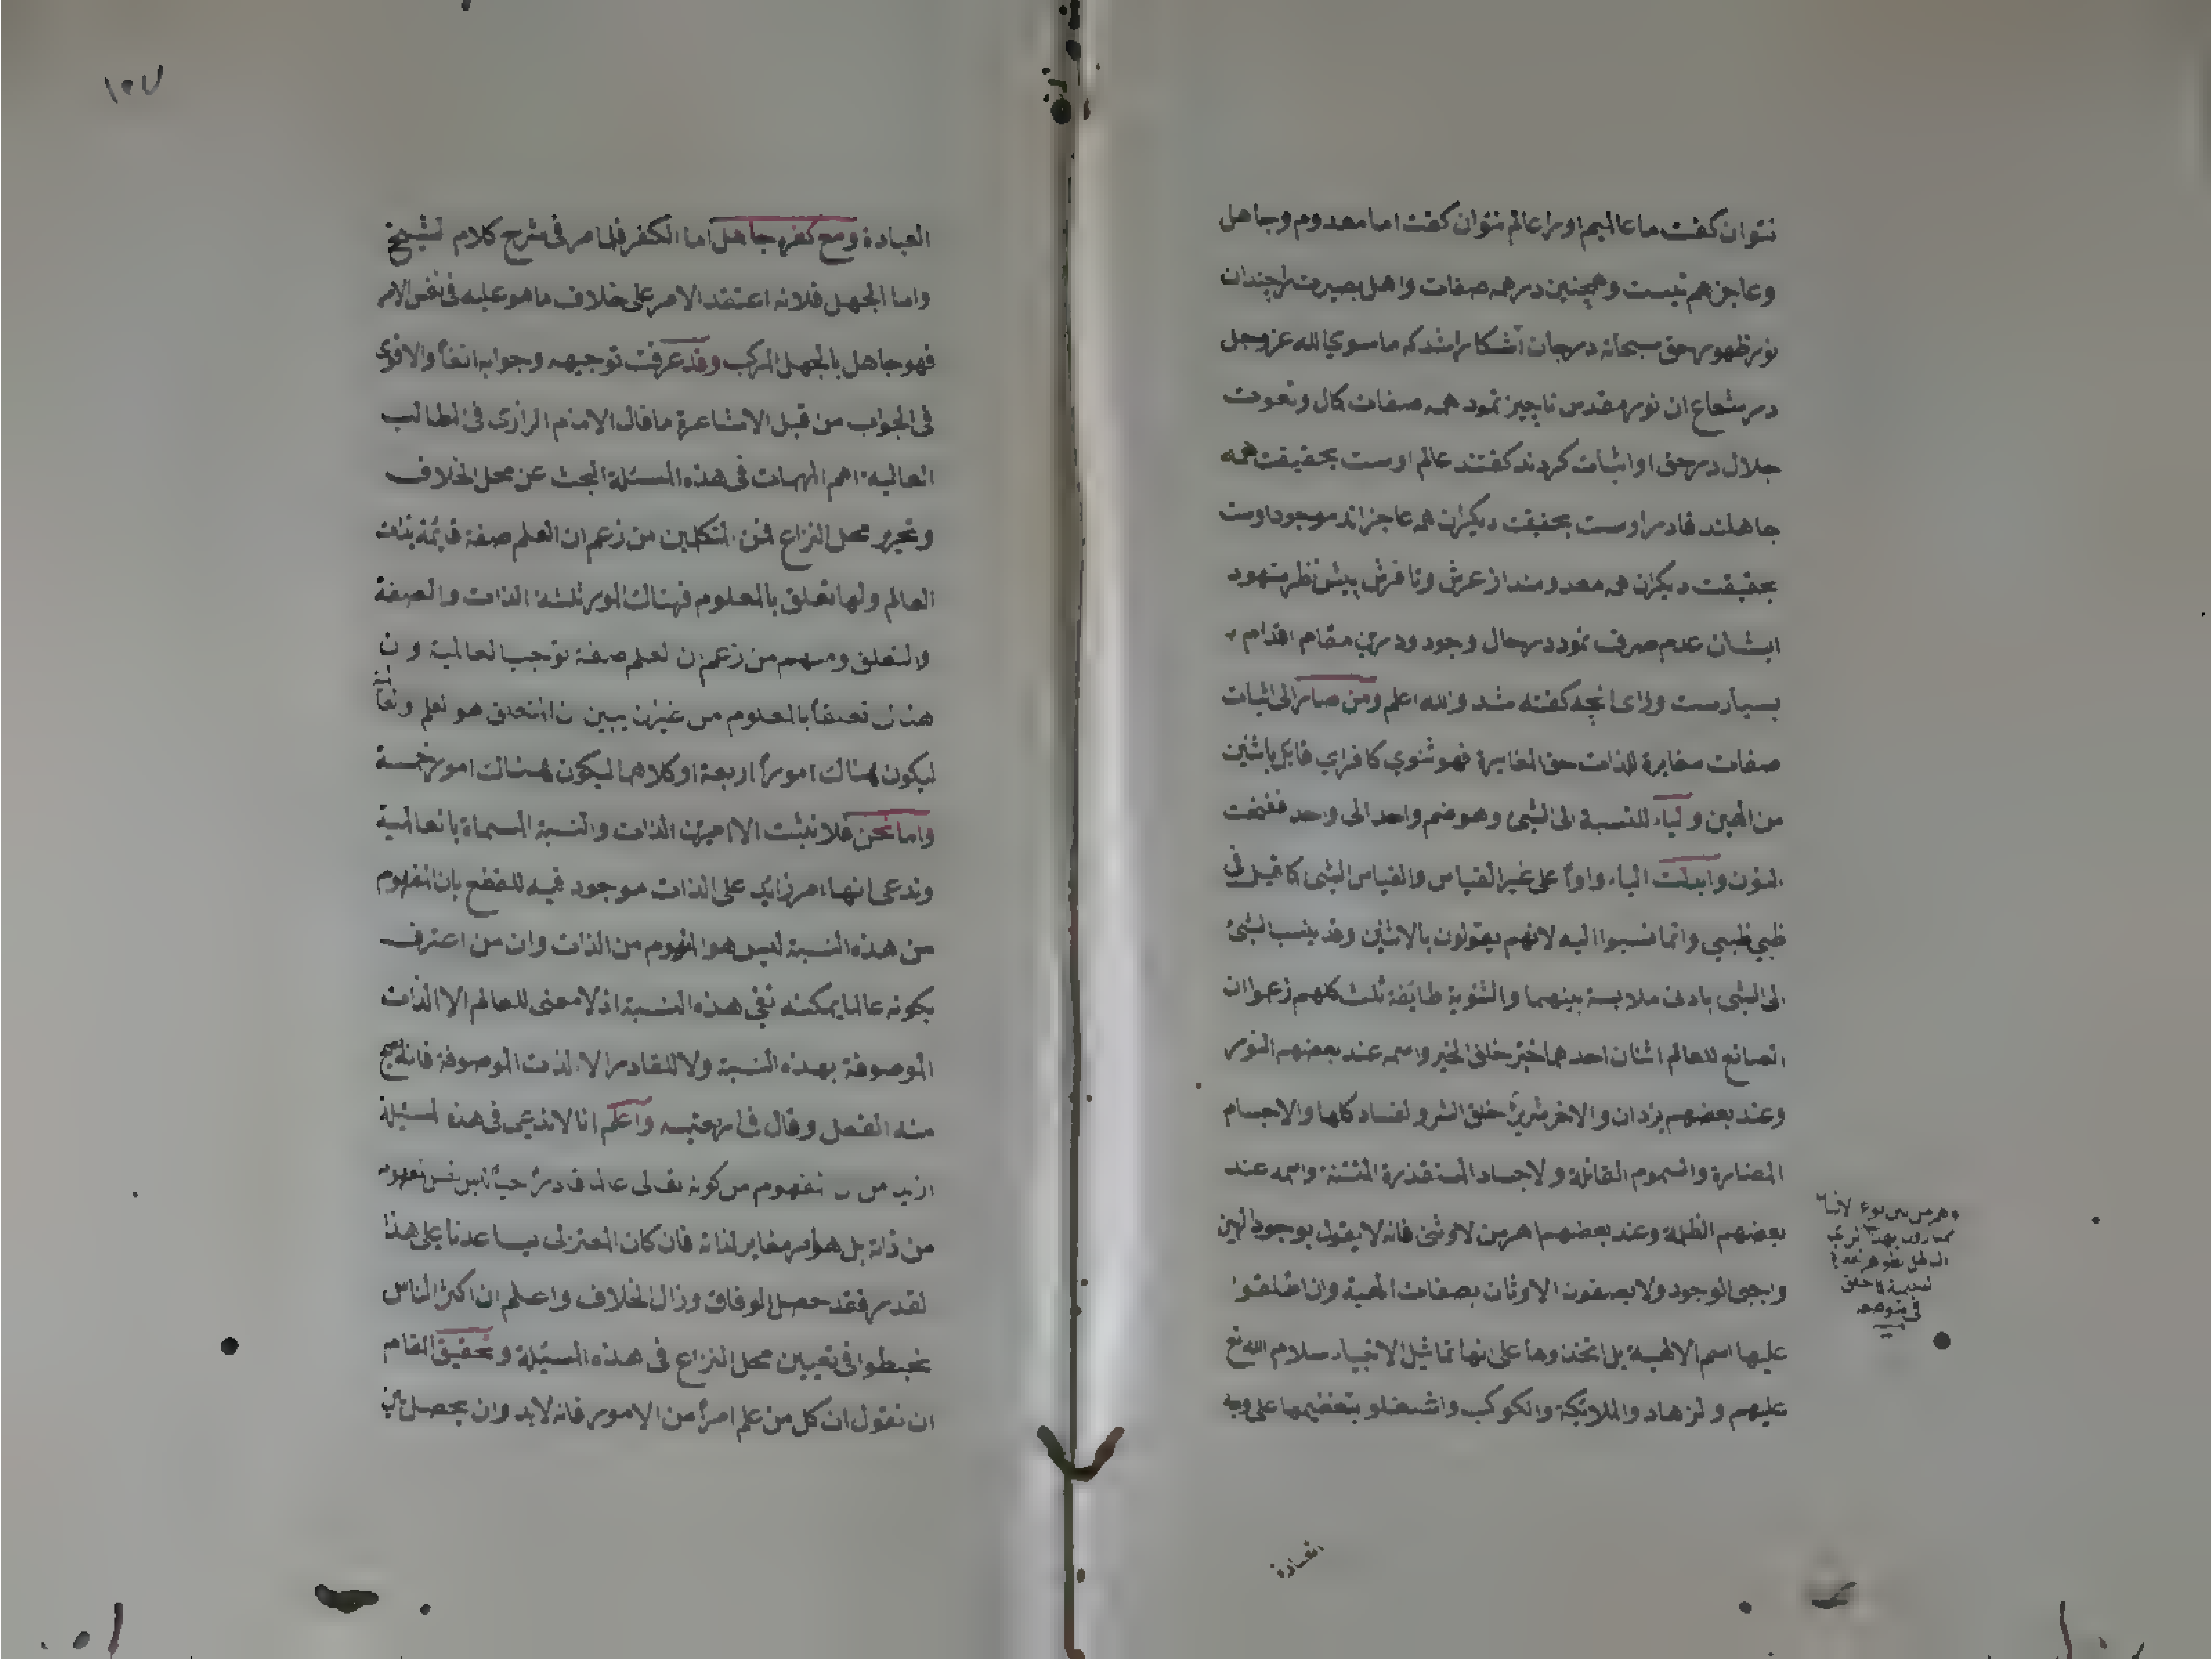 نتوان كفت ما عالميم اورا عالم نتوان كفت اما معدوم وجاهل
وعاجز هم نيست وهمچنين در همه صفات واهل بصيرت را چندان
نور ظهور حق سبحانه در جان آشكارا شد كه ما سوي الله عز وجل
در شعاع ان نور مقدس ناچيز نمود همه صفات كمال ونعوت
جلال در حق او اثبات كردند كفتند عالم اوست بحقيقت همه
جاهلند قادر اوست بحقيقت ديكران همه عاجزاند موجود اوست
بحقيقت ديكران همه معدومند از عرش وتا فرش پيش نظر شهود
ايشان عدم صرف نمود در حال وجود ودرين مقام اقدام
بسيارست وراى انچه كفته شد والله اعلم ومن صار الى اثبات
صفات مغايرة للذات حق المغايرة فهو ثنوي كافر اي قايل باثنين
من الهين والياء للنسبة الى الشئ وهو ضم واحد الى واحد ففتحت
النون وابدلت الياء واواً على غير القياس والقياس الثنى كما قيل فى
ظبي ظبيي وانما نسبوا اليه لانهم يقولون بالاثنين وقد ينسب الشئ
الى الشئ بادنى ملابسة بينهما والثنوية طايفة ثلث كلهم زعموا ان
الصانع للعالم اثنان احدهما خيّر خلق الخير واسمه عند بعضهم النور
وعند بعضهم يزدان والاخر شريرٌ خلق الشر والفساد كلها والاجسام
المضارة والسموم القاتلة والاجساد المستقذرة المنتنة واسمه عند
بعضهم الظلمة وعند بعضهم اهرمن لا وثنى فانه لا يقول بوجود الهين
واجبى الوجود ولا يصفون الاوثان بصفات الهية وان اطلقوا
عليها اسم الالهية بل اتخذوها على انها تماثيل الانبياء سلام الله تع
عليهم والزهاد والملائكة والكوكب واشتغلو بتعظيمها على وجه
العبادة
١٢٧
العبادة ومع كفره جاهل اما الكفر فلما مر فى شرح كلام الشيخ
واما الجهل فلانه اعتقد الامر على خلاف ما هو عليه فى نفس الامر
فهو جاهل بالجهل المركب وقد عرفت توجيهه وجوابه انفاً والاقوى
فى الجواب من قبل الاشاعرة ما قال الامام الرازى فى المطالب
العالية اهم المهمات فى هذه المسئلة البحث عن محل الخلاف
وتحرير محل النزاع فمن المتكلمين من زعم ان العلم صفة قايمة بذات
العالم ولها تعلق بالمعلوم فهناك امور ثلثة الذات والصفة
والتعلق ومنهم من زعم ان العلم صفة توجب العالمية وان
هناك تعلقاً بالمعلوم من غير ان يبين ان المتعلق هو العلم
ليكون هناك اموراً اربعة او كلاهما ليكون هناك امور خمسة
واما نحن فلا نثبت الا امرين الذات والنسبة المسماة بالعالمية
وندعى انها امر زايد على الذات موجود فيه للقطع بان المفهوم
من هذه النسبة ليس هو المفهوم من الذات وان من اعترف
بكونه عالما يمكنه نفى هذه النسبة اذ لا معنى للعالم الا الذات
الموصوفة بهذه النسبة ولا للقادر الا الذات الموصوفة فانه يصح
منه الفعل وقال فى اربعينه واعلم انا لا ندعى فى هذه المسئلة
ازيد من ان المفهوم من كونه تعالى عالما قادراً حياً ليس نفس المفهوم
من ذاته بل هو امر مغاير لذاته فان كان المعتزلى يساعدنا على هذا
لقدر فقد حصل الوفاق وزال الخلاف واعلم ان اكثر الناس
يخبطوا فى تعيين محل النزاع فى هذه المسئلة وتحقيق المقام
ان نقول ان كل من علم امراً من الامور فانه لابد وان يحصل بين